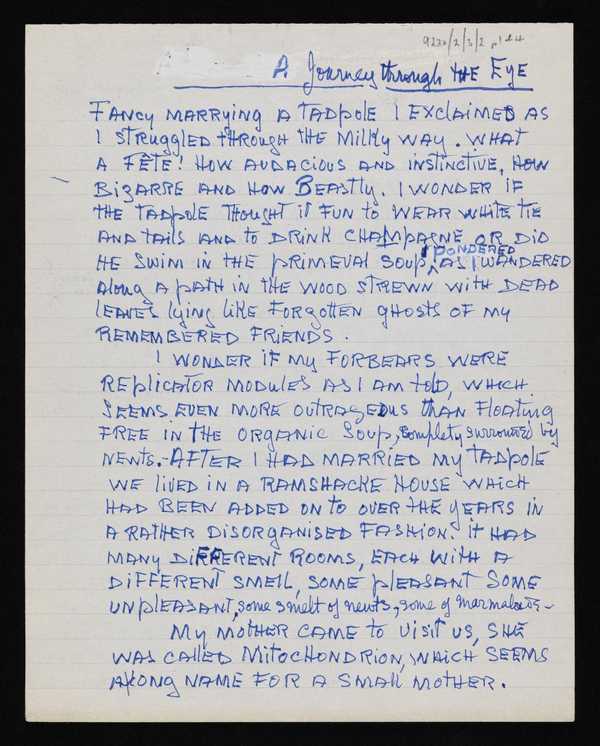 9230/2/3/2 p1 of 4
A Journey through the Eye
FANCY MARRYING A TADPOLE I EXCLAIMED AS
I STRUGGLED THROUGH THE MILKY WAY. WHAT
A FÊTE! HOW AUDACIOUS AND INSTINCTIVE, HOW
BIZARRE AND HOW BEASTLY. I WONDER IF
THE TADPOLE THOUGHT IT FUN TO WEAR WHITE TIE
AND TAILS AND TO DRINK CHAMPAGNE OR DID
I PONDERED
HE SWIM IN THE PRIMEVAL SOUP, AS I WANDERED
ALONG A PATH IN THE WOOD STREWN WITH DEAD
LEAVES LYING LIKE FORGOTTEN GHOSTS OF MY
REMEMBERED FRIENDS.
I WONDER IF MY FORBEARS WERE
REPLICATOR MODULES AS I AM TOLD, WHICH
SEEMS EVEN MORE OUTRAGEOUS THAN FLOATING
FREE IN THE ORGANIC SOUP, complety surrounded by
NEWTS. - AFTER I HAD MARRIED MY TADPOLE
WE LIVED IN A RAMSHACKE HOUSE WHICH
HAD BEEN ADDED ON TO OVER THE YEARS IN
A RATHER DISORGANISED FASHION. IT HAD
MANY DIFFERENT ROOMS, EACH WITH A
DIFFERENT SMELL, SOME PLEASANT SOME
UNPLEASANT, some smelt of newts, some of marmalade -
MY MOTHER CAME TO VISIT US, SHE
WAS CALLED MITOCHONDRION, WHICH SEEMS
A LONG NAME FOR A SMALL MOTHER.